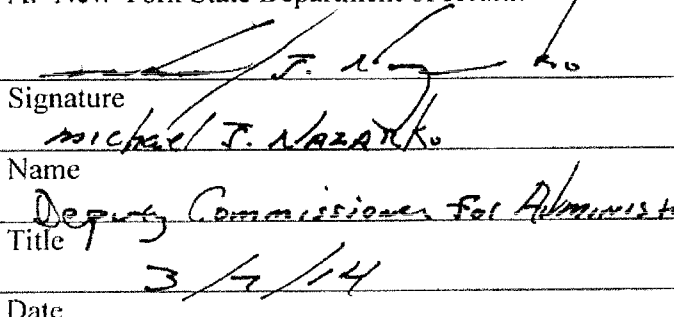 New York State Department of Health
J. Nazarko
Signature
Michael J. Nazarko
Name
Deputy Commissioner for Administ
Title
3/7/14
Date